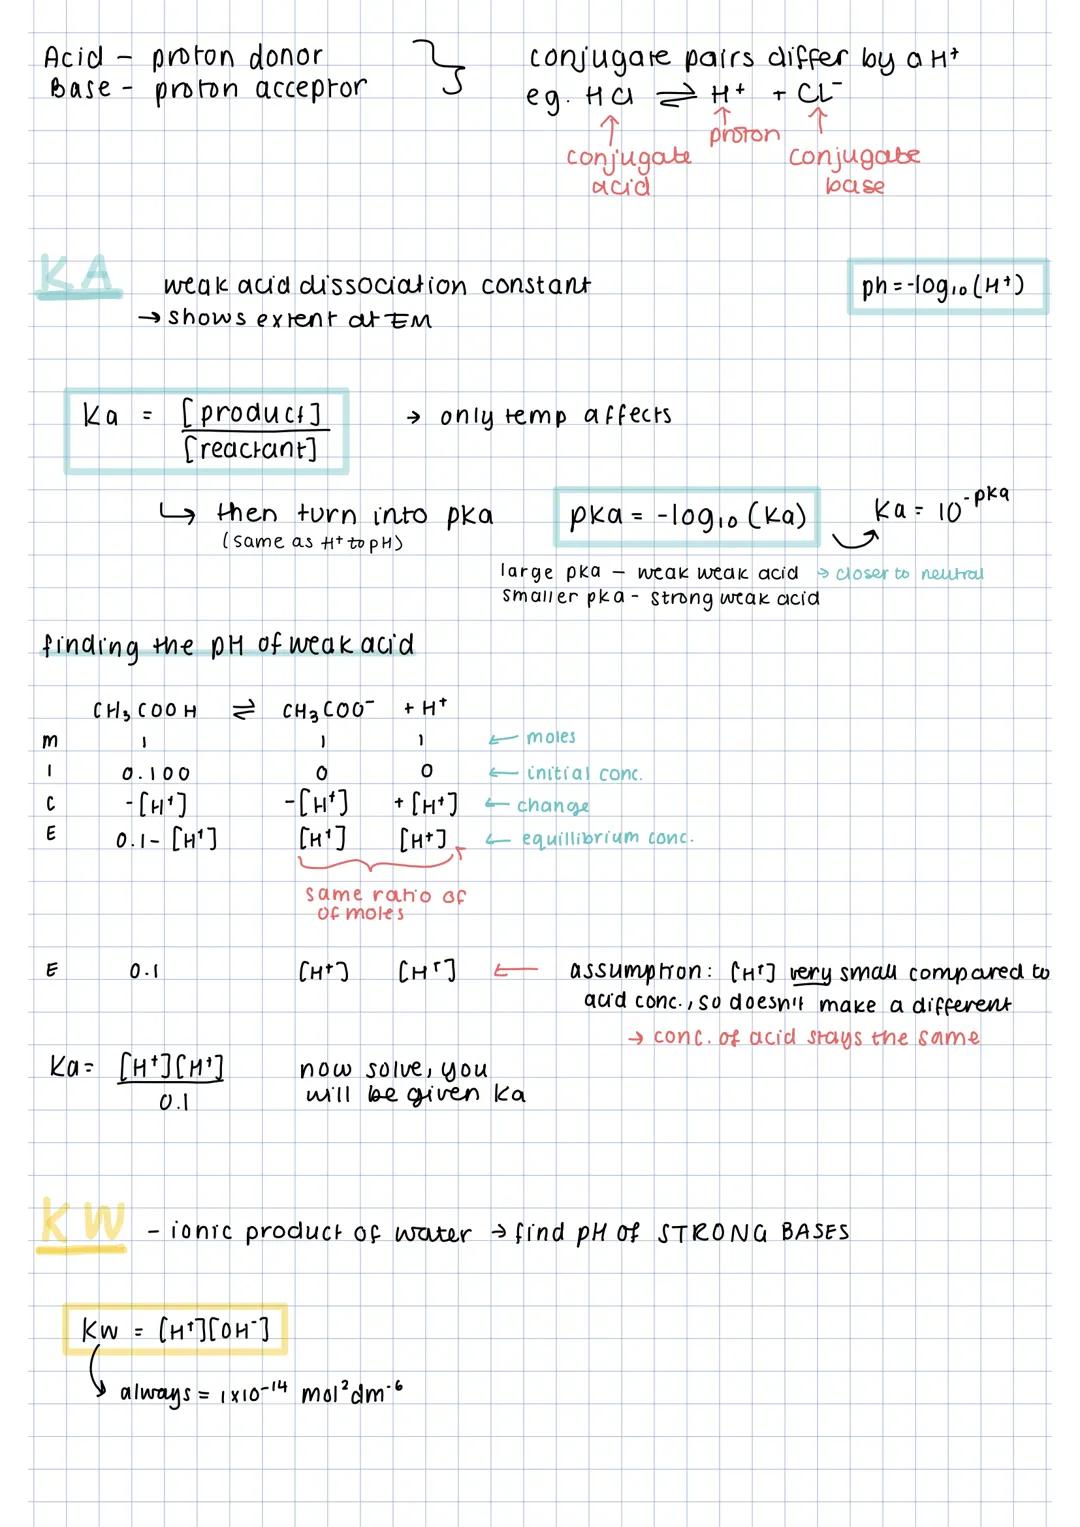 Acid - proton donor
Base - proton acceptor
conjugate pairs differ by a H⁺
eg. HCl ⇌ H⁺ + CL⁻
proton
conjugate acid
conjugate base
KA
weak acid dissociation constant
→ shows extent at EM
ph = -log₁₀ (H⁺)
Ka = [product] / [reactant]
→ only temp affects
↳ then turn into pka
(same as H⁺ to pH)
pka = -log₁₀ (Ka)
Ka = 10^-pka
large pka - weak weak acid → closer to neutral
smaller pka - strong weak acid
finding the pH of weak acid
CH₃COOH ⇌ CH₃COO⁻ + H⁺
m 1 1 1 ← moles
I 0.100 0 0 ← initial conc.
C -[H⁺] -[H⁺] +[H⁺] ← change
E 0.1-[H⁺] [H⁺] [H⁺] ← equillibrium conc.
same ratio of
of moles
E 0.1 [H⁺] [H⁺] ← assumption: [H⁺] very small compared to
acid conc., so doesn't make a different
→ conc. of acid stays the same
Ka = [H⁺][H⁺] / 0.1
now solve, you
will be given Ka
KW
- ionic product of water → find pH of STRONG BASES
Kw = [H⁺][OH⁻]
always = 1x10⁻¹⁴ mol²dm⁻⁶